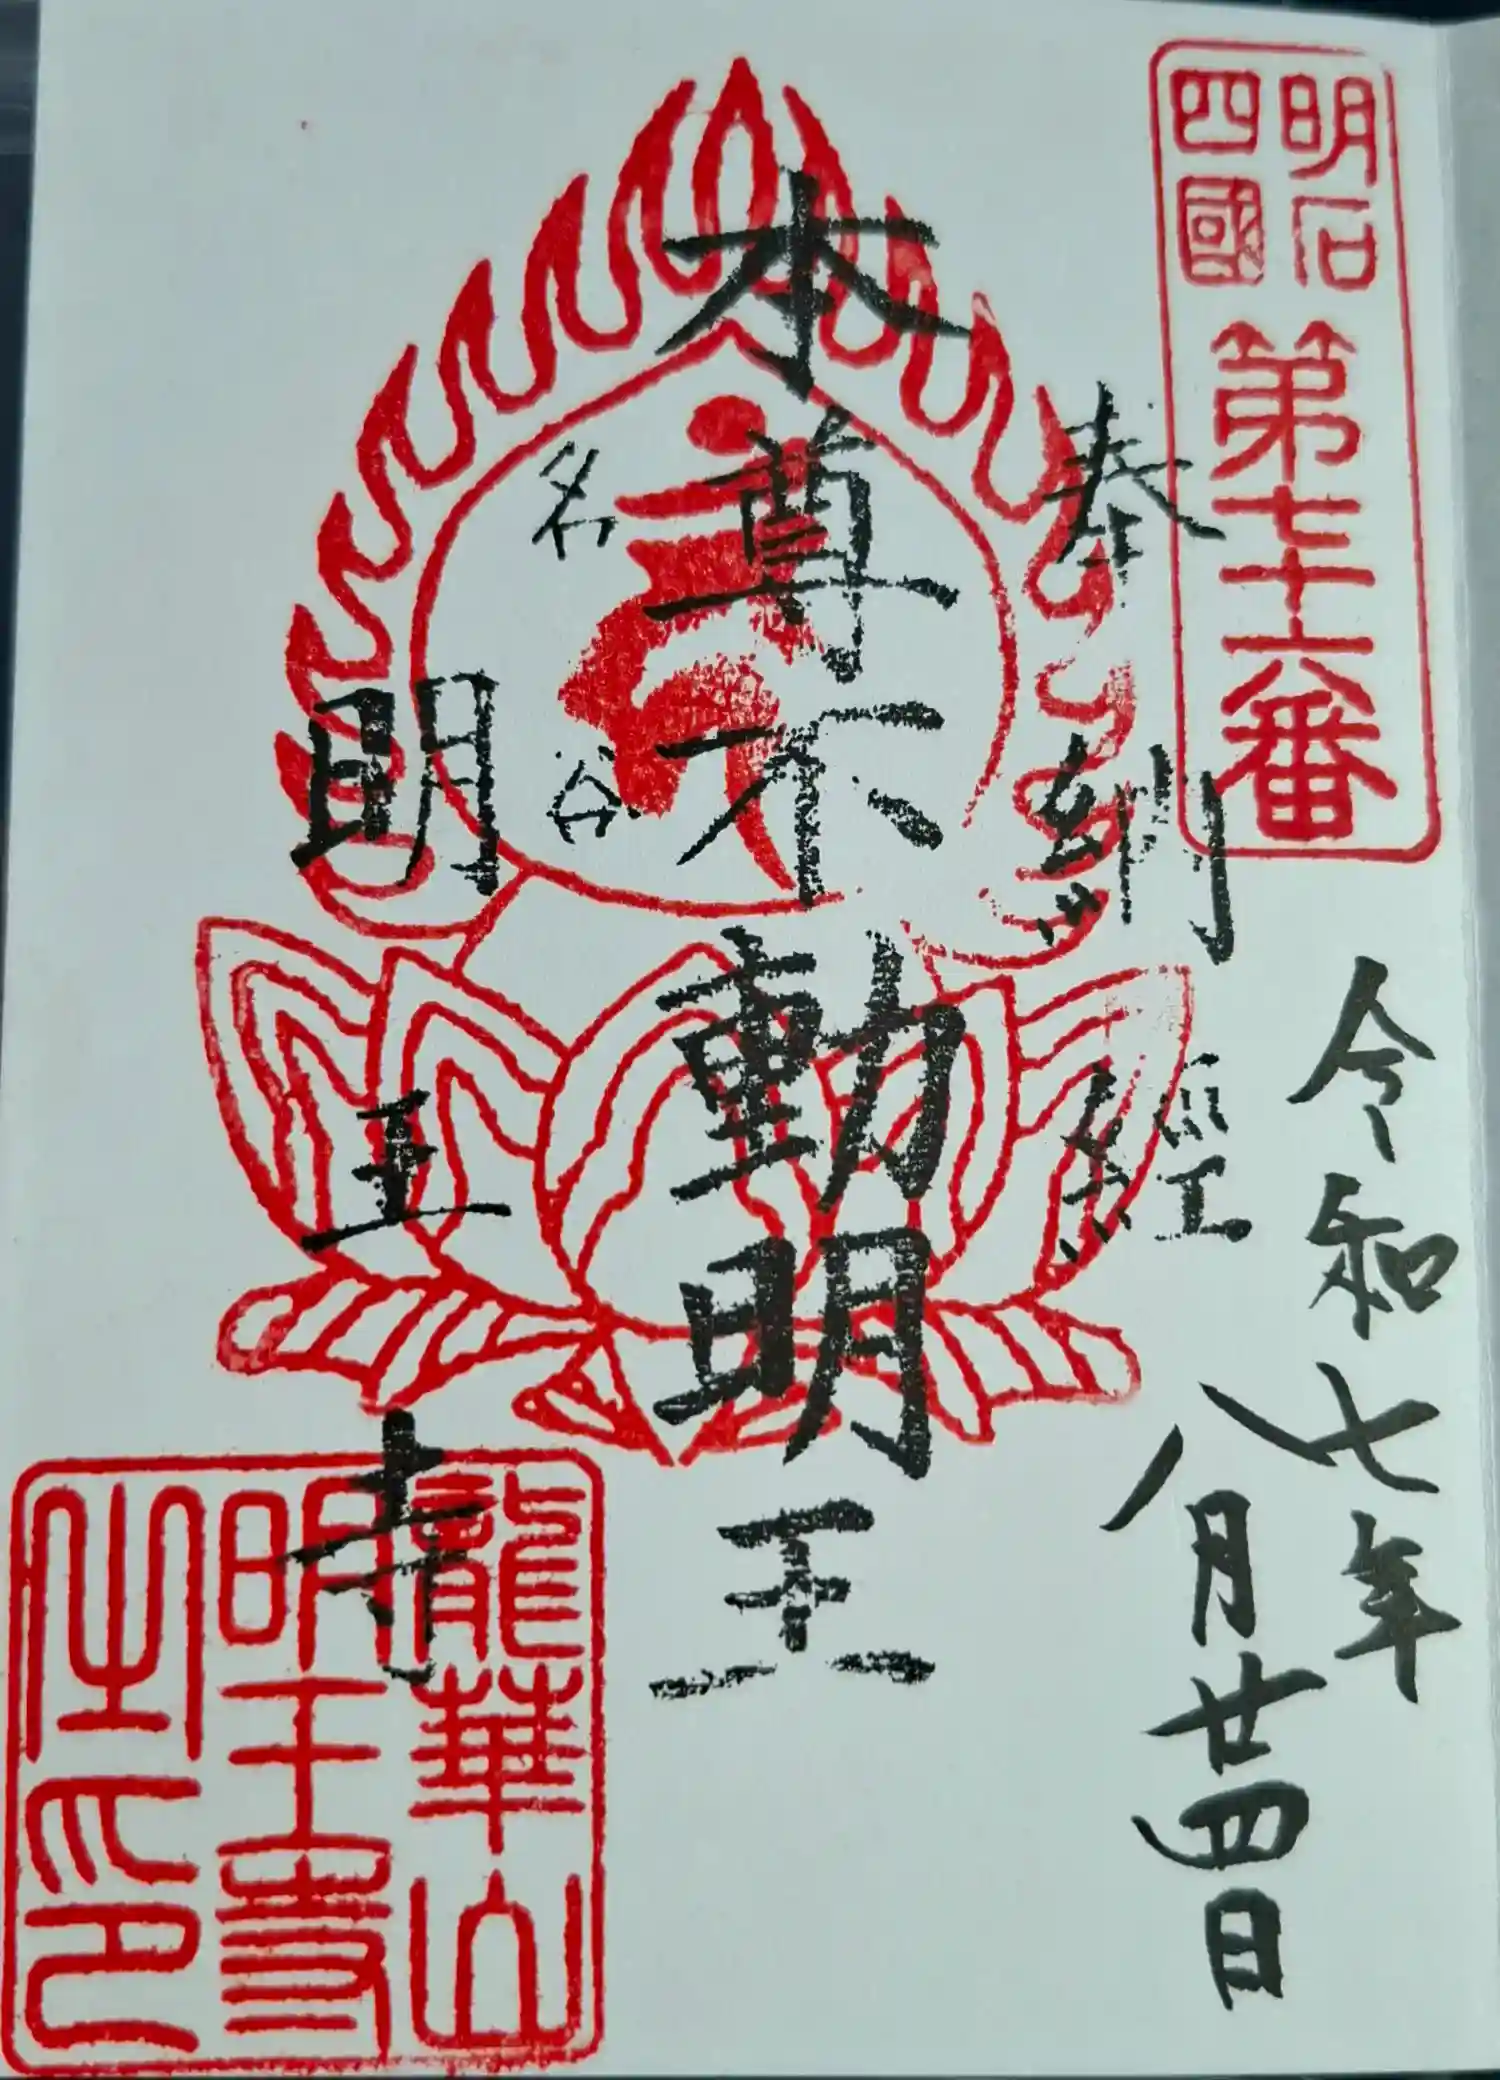 明石
四國
第七十六番
令和七年
八月廿四日
奉納經
本尊不動明王
名谷
明王寺
龍華山
明王寺
之印